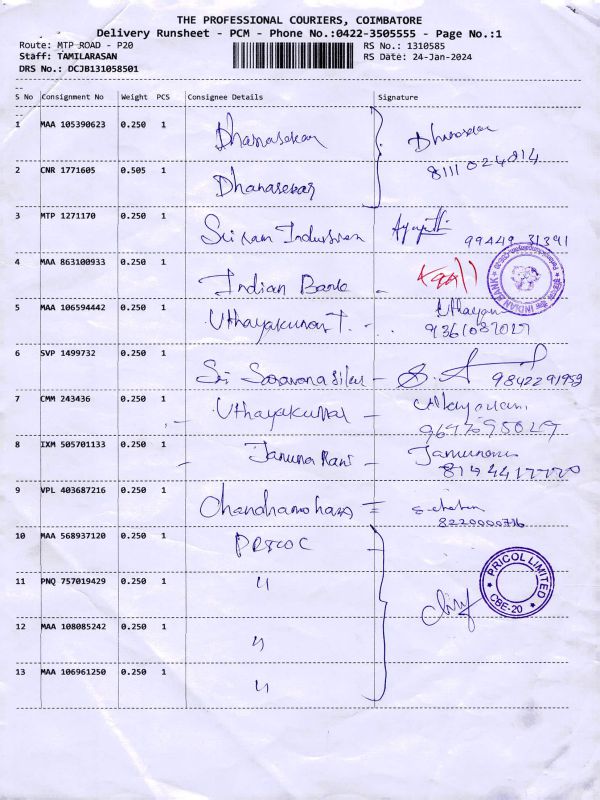 THE PROFESSIONAL COURIERS, COIMBATORE
Delivery Runsheet - PCM - Phone No.:0422-3505555 - Page No.:1
Route: MTP ROAD - P20 RS No.: 1310585
Staff: TAMILARASAN RS Date: 24-Jan-2024
DRS No.: DCJB131058501
S No Consignment No Weight PCS Consignee Details Signature
1 MAA 105390623 0.250 1 Dhanasekar
8111024014
2 CNR 1771605 0.505 1 Dhanasekar
3 MTP 1271170 0.250 1 Sri ram Industries 99449 31391
4 MAA 863100933 0.250 1 Indian Bank -
INDIAN BANK
5 MAA 106594442 0.250 1 Uthayakumar T. - Uthayan
9361087027
6 SVP 1499732 0.250 1 Sri Saravana - 9842291953
7 CMM 243436 0.250 1 Uthayakumar -
9697595029
8 IXM 505701133 0.250 1 Jamuna Rani -
9 VPL 403687216 0.250 1
10 MAA 568937120 0.250 1 PRICOL -
11 PNQ 757019429 0.250 1 "
PRICOL LIMITED
CBE-20
12 MAA 108085242 0.250 1 "
13 MAA 106961250 0.250 1 "